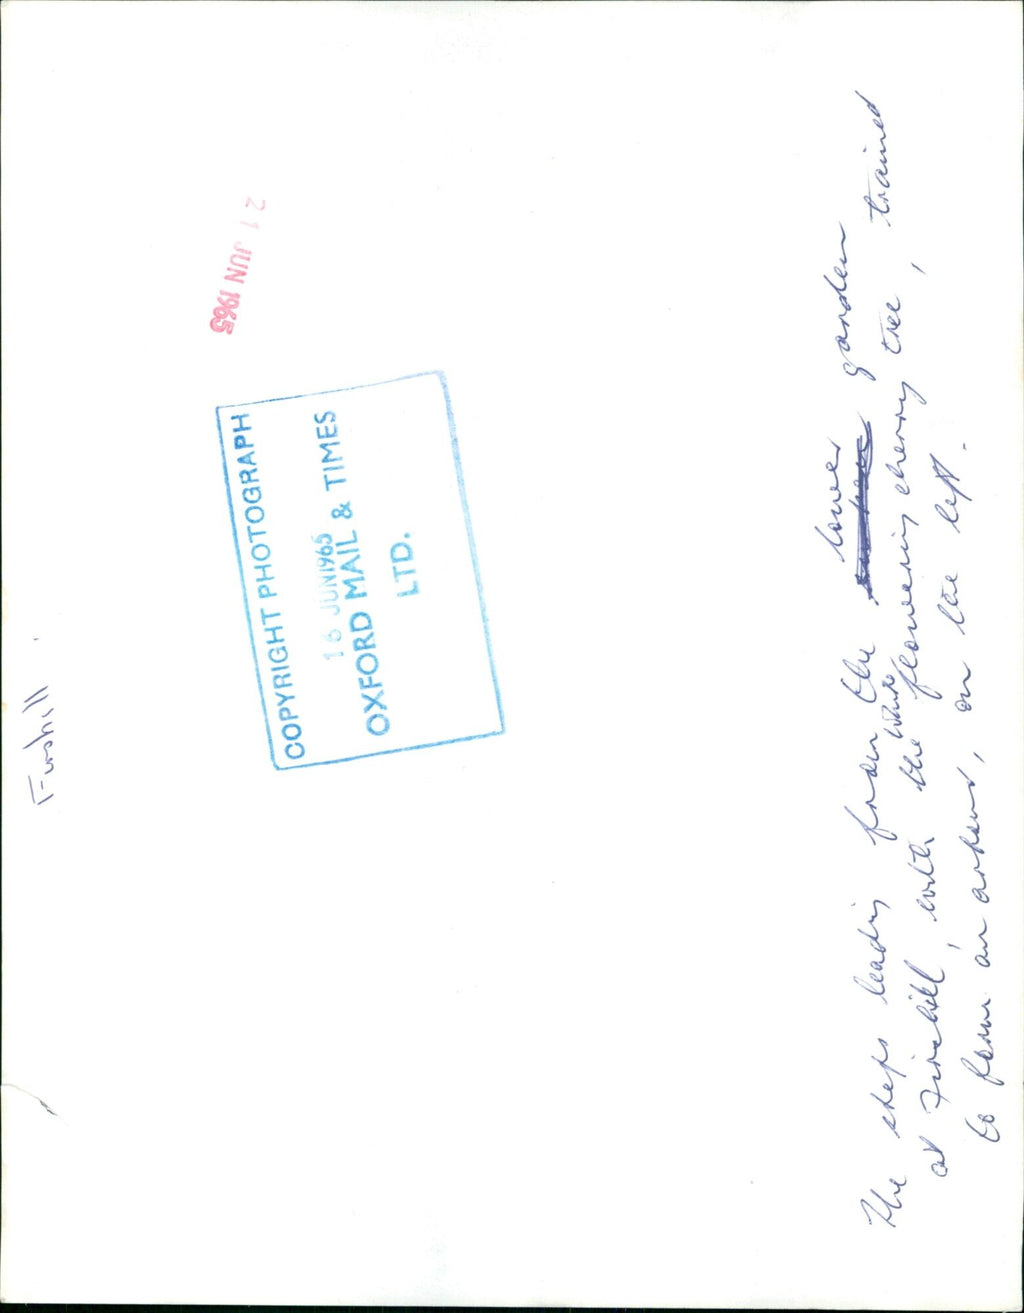 Firshill
21 JUN 1965
COPYRIGHT PHOTOGRAPH
16 JUN 1965
OXFORD MAIL & TIMES
LTD.
The steps leading from the lower garden
at Firshill, with the white flowering cherry tree, trained
to form an arbour, on the left.